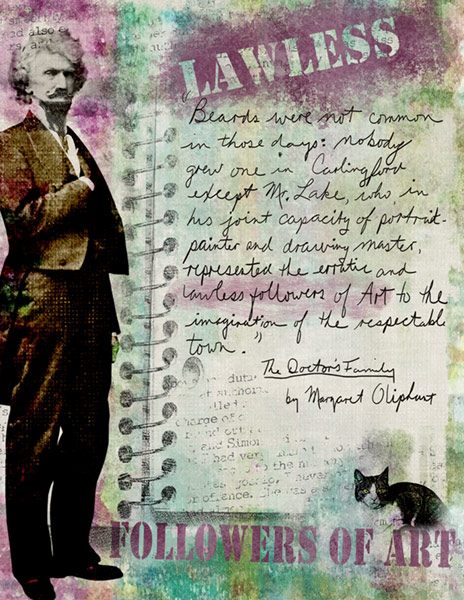 LAWLESS
Beards were not common
in those days: nobody
grew one in Carlingford
except Mr. Lake, who, in
his joint capacity of portrait-
painter and drawing master,
represented the erratic and
lawless followers of Art to the
imagination of the respectable
town."
The Doctor's Family
by Margaret Oliphant
and Simon
had ver
FOLLOWERS OF ART